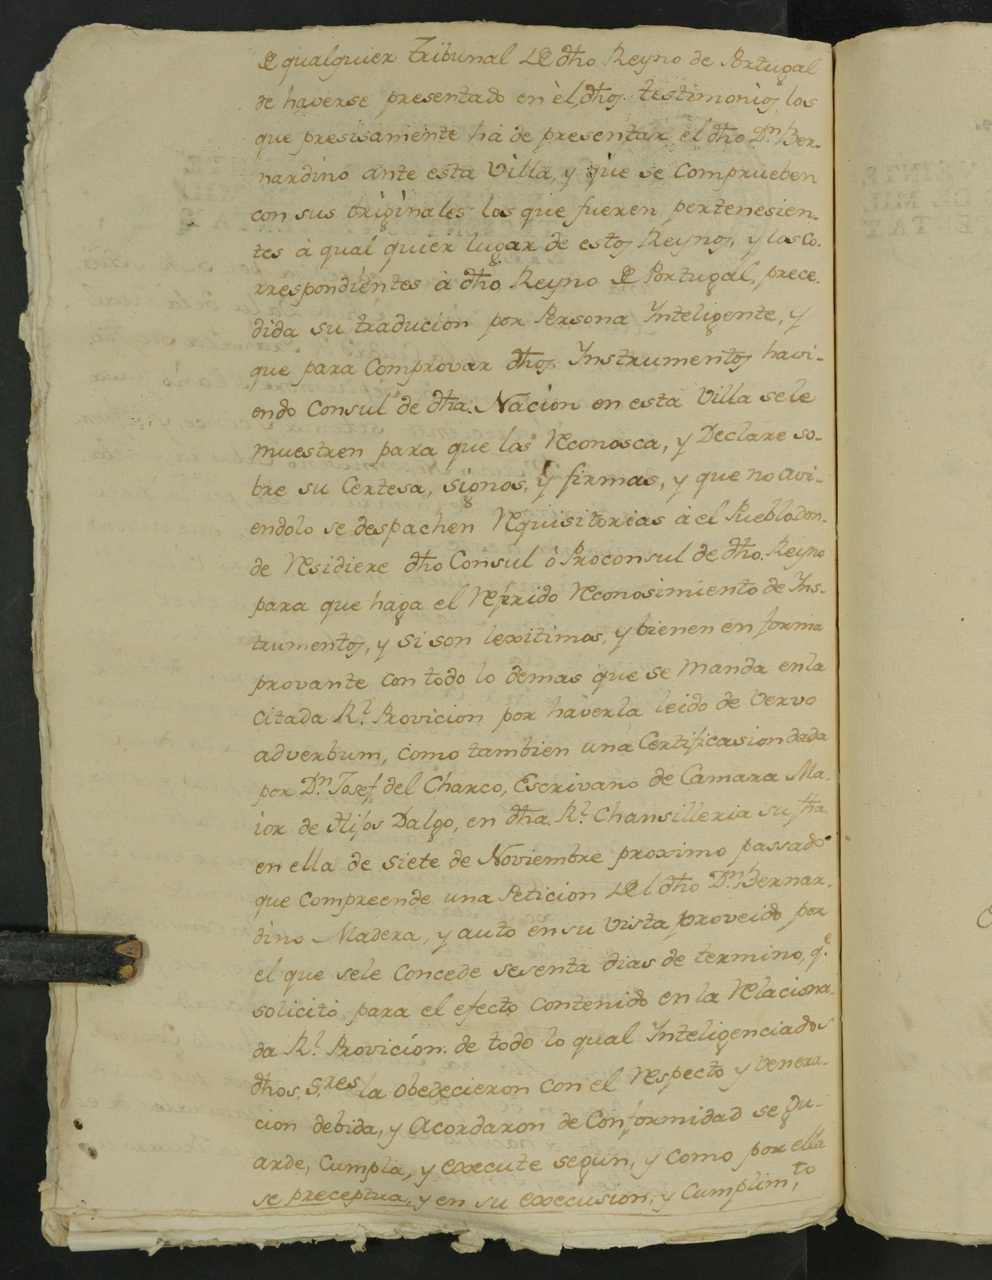 de qualquier tribunal de dho Reyno de Portugal
de haverse presentado en èl dhos. testimonios, los
que presisamente há de presentar el dho Dn. Ber-
nardino ante esta Villa, y que se comprueben
con sus originales los que fueren pertenesien-
tes à qual quier lugar de estos Reynos, y los Co-
rrespondientes à dho Reyno de Portugal, prece-
dida su traducion por Persona Inteligente, y
que para Comprovar dhos. Instrumentos havi-
endo Consul de dha. Nacion en esta Villa sele
muestren para que las Reconosca, y Declare so-
bre su Certesa, signos, y firmas, y que no avi-
endolo se despachen Requisitorias à el Pueblo don-
de Residiere dho Consul ò Proconsul de dho. Reyno
para que haga el Refrido Reconosimiento de Ins-
trumentos, y si son lexitimos, y bienen en forma
provante con todo lo demas que se manda en la
citada Rl. Provicion por haverla leido de Vervo
adverbum, como tambien una Certificasion dada
por Dn. Josef del Charco, Escrivano de Camara Ma-
ior de Hijos Dalgo, en dha. Rl. Chansilleria su fha
en ella de siete de Noviembre proximo passado
que Compreende una Peticion del dho Dn. Bernar-
dino Madera, y auto en su vista proveido por
el que sele Concede sesenta dias de termino, qe.
solicitó para el efecto contenido en la Relaciona-
da Rl. Provicion. de todo lo qual Inteligenciados
dhos. Sres. la obedecieron con el Respecto y Venera-
cion debida, y Acordaron de Conformidad se gu-
arde, Cumpla, y execute segun, y como por ella
se preceptua, y en su execusion, y Cumplimto.